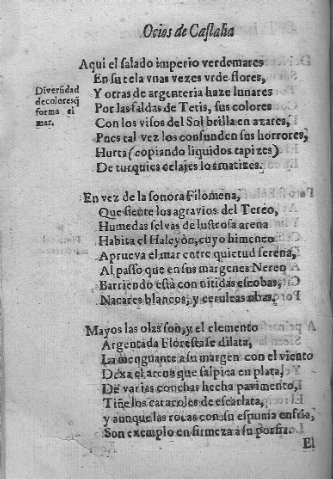 Ocios de Castalia
Aqui el salado imperio verdemares
En su tela vnas vezes vrde flores,
Y otras de argenteria haze lunares
Por las faldas de Tetis, sus colores
Con los visos del Sol brilla en azares,
Pues tal vez los confunden sus horrores,
Hurta (copiando liquidos tapizes)
De turquica celajes lo smatizes.
Diversidad
de colores q̃
forma el
mar.
En vez de la sonora Filomena,
Que siente los agravios del Tereo,
Humedas selvas de lustrosa arena
Habita el Halcyon, cuyo himeneo
Aprueva el mar entre quietud serena,
Al passo que en sus margenes Nereo
Barriendo està con nitidas escobas,
Nacares blancos, y ceruleas obas.
Mayos las olas son, y el elemento
Argentada Floresta se dilata,
La menguante a su margen con el viento
Dexa arcos que salpica en plata,
De varias conchas hecha pavimento,
Tiñe los caracoles de escarlata,
y aunque las rocas con su espuma ensria,
Son exemplo en firmeza a su porfia.
El